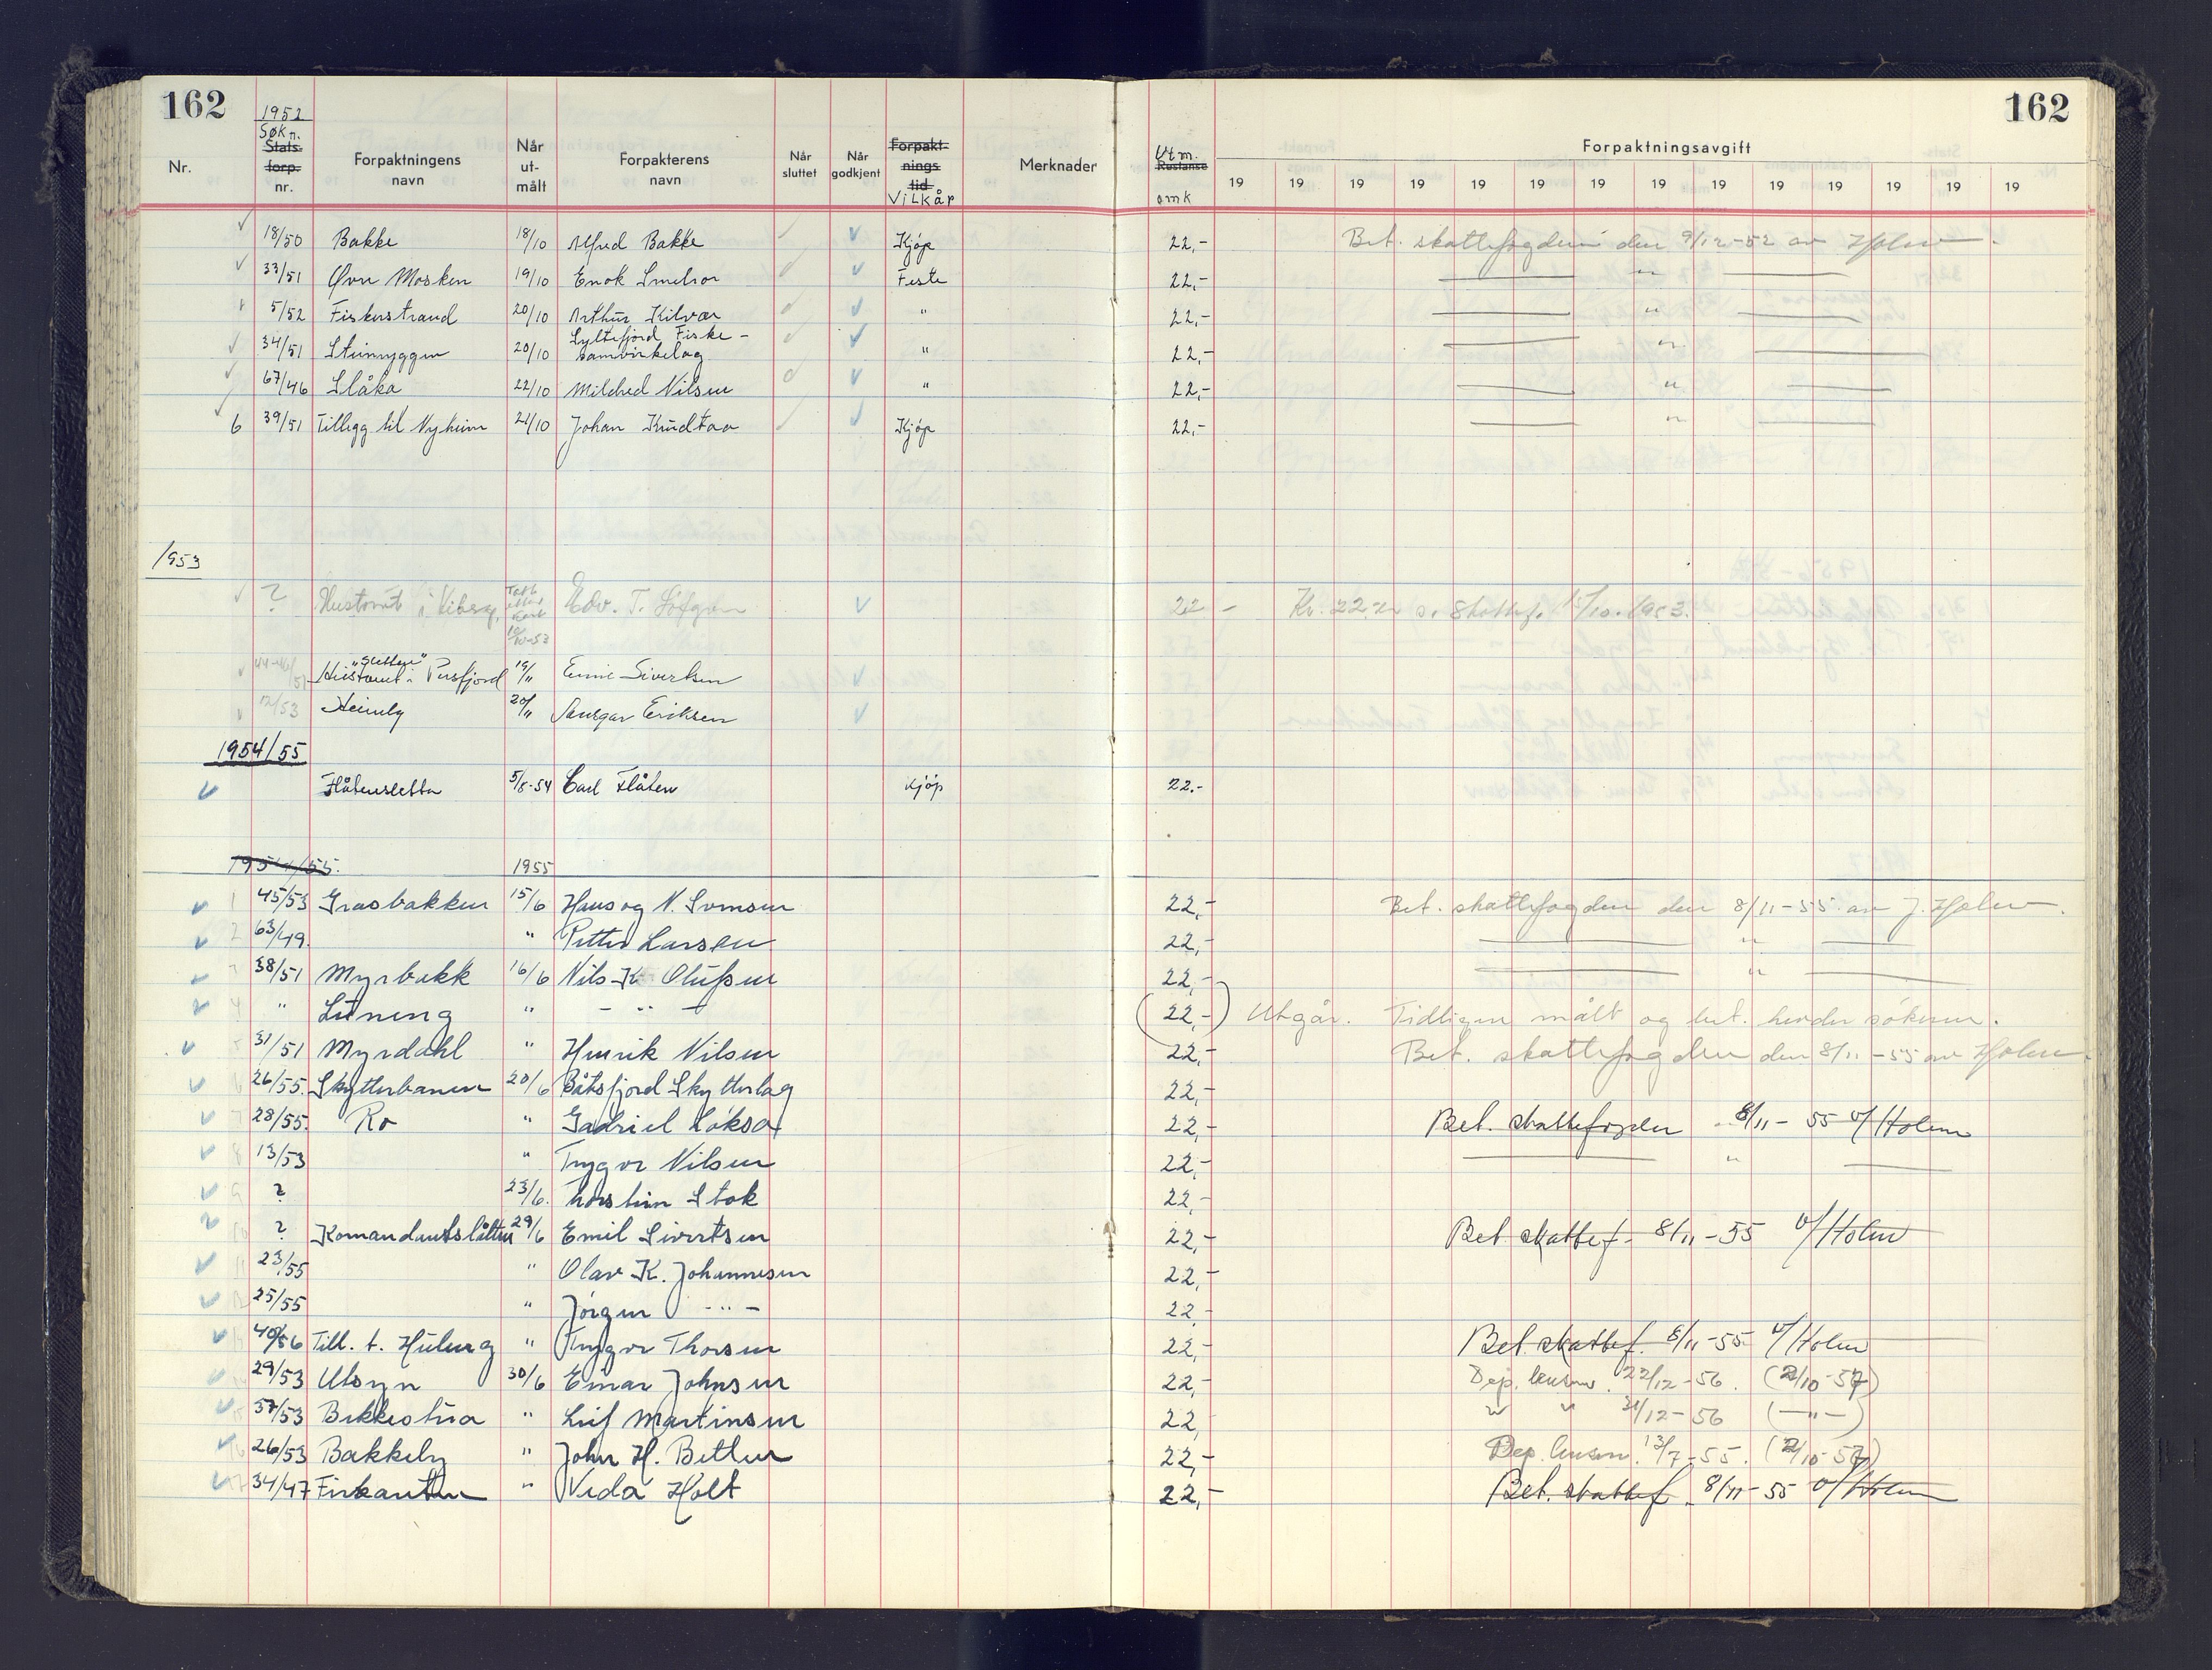 162 162
1952
Søk n.
Nr. Stats. forp. nr. Forpaktningens navn Når ut- målt Forpakterens navn Når sluttet Når godkjent Forpakt- nings tid Vilkår Merknader Utm. Restanse omk Forpaktningsavgift
19 19 19 19 19 19 19 19 19 19 19 19 19 19
18/50 Bakke 18/10 Alfred Bakke Kjøp 22,- Bet. skattefogden den 9/12-52 av Holm
33/51 Øvre Mosken 19/10 Enok Smelror Feste 22,- "
5/52 Fiskerstrand 20/10 Arthur Kilvær " 22,- "
34/51 Steinryggen 20/10 Syltefjord Fiske-
samvirkelag " 22,- "
67/46 Slåka 22/10 Mildred Nilsen " 22,- "
6 39/51 Tillegg til Nyheim 21/10 Johan Knudtaa Kjøp 22,- "
1953
? Hustomt i Kiberg, Edv. T. Löfgren 22 - Kr. 22 s. Skattef. 15/10. 1953.
10/10-53
"Sletten"
Hustomt i Persfjord 19/11 Ennie Sivertsen
12/53 Heimly 20/11 Ansgar Eriksen
1954/55
Flåtensletta 5/8-54 Carl Flåten Kjøp 22.-
1954/55. 1955
1 45/53 Grasbakken 15/6 Hans og N. Svensen 22,- Bet. skattefogden den 8/11-55 av J. Holm
2 63/49. " Petter Larsen 22,- "
38/51 Myrbakk 16/6 Nils K. Olufsen 22,- "
4 " Luneng " - " - (22,-) Utgår. Tidligere målt og bet. herder søkeren.
5 31/51 Myrdahl " Henrik Nilsen 22,- Bet. skattefogden den 8/11-55 av Holm
6 26/55. Skytterbanen 20/6 Båtsfjord Skytterlag 22,-
7 28/55. Ro " Gadriel Loksa 22,- Bet. skattefogden 8/11-55 v/Holm
8 13/53 " Trygve Nilsen 22,- "
9 ? 23/6. Thorstein Stok 22,-
10 ? Komandantslåtten 29/6 Emil Sivertsen 22,- Bet. skattef. 8/11-55 v/Holm
11 23/55 " Olav K. Johannesen 22,-
12 25/55 " Jørgen - " - 22,-
40/56 Till. t. Huleng " Trygve Thorsen 22,- Bet. skattef. 8/11-55 v/Holm
29/53 Utsyn 30/6 Einar Johnsen 22,- Dep. lensm. 22/12-56. (2/10-57)
15 37/53 Bekkestua " Leif Martinsen 22, " " 31/12-56 (-"-)
16 26/53 Bakkely " John H. Betten 22,- Dep. lensm. 13/7-55. (2/10-57)
17 34/47 Firkanten " Vida Holt 22,- Bet. skattef. 8/11-55 v/Holm